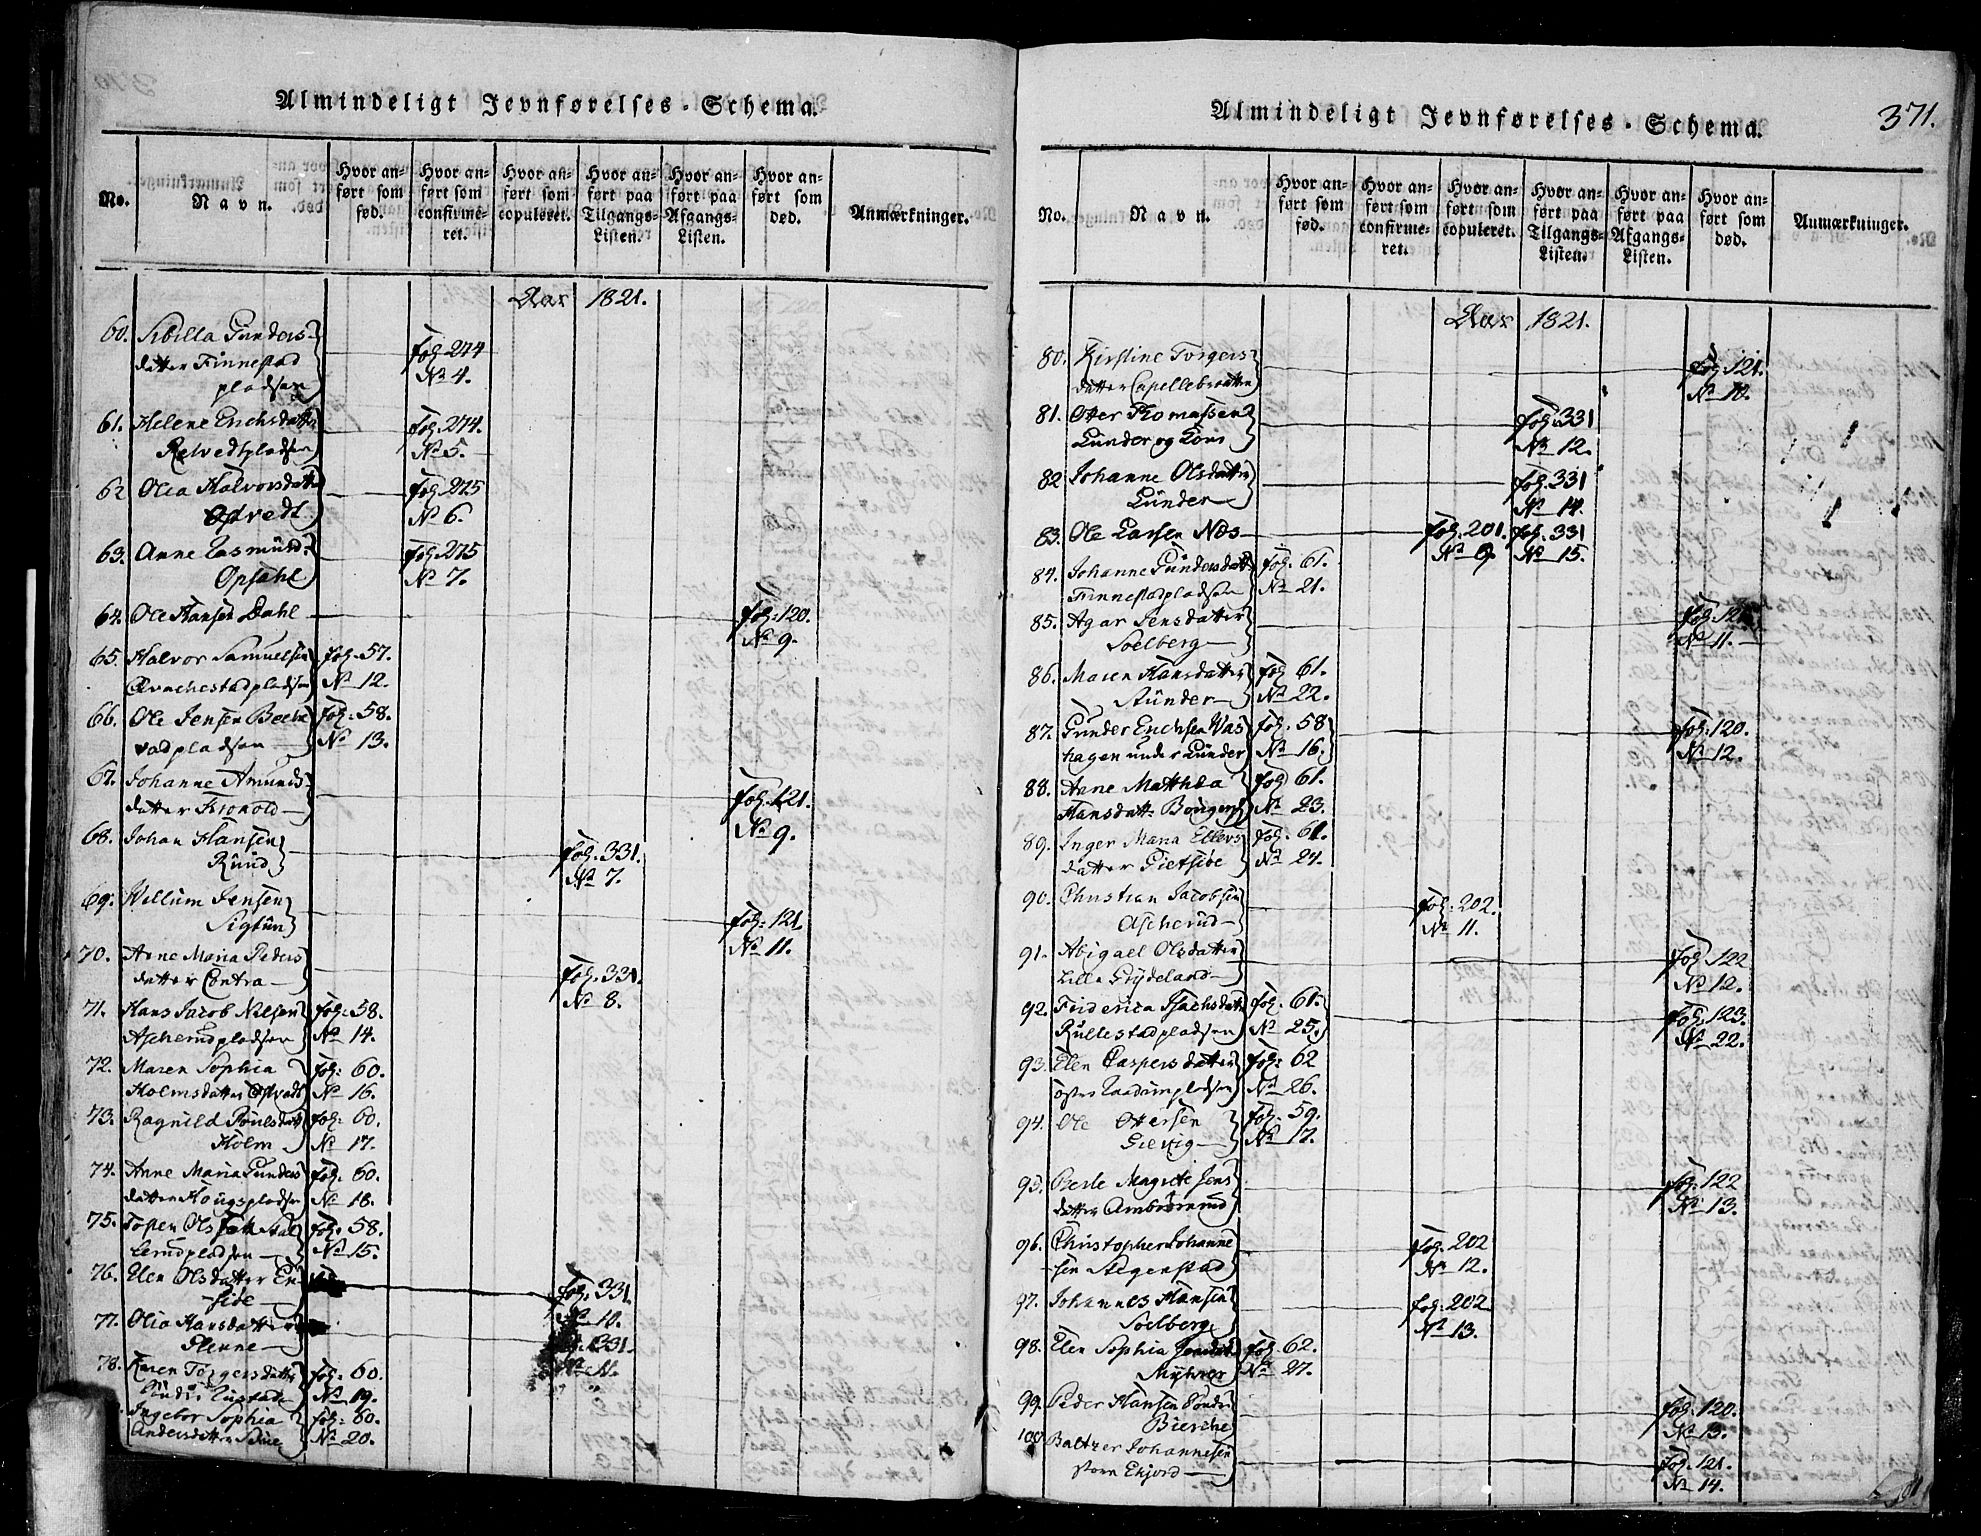 Almindeligt Jevnførelses-Schema.
No.
Navn.
Hvor anført som fød.
Hvor anført som confirmeret.
Hvor anført som copuleret.
Hvor anført paa Tilgangs-Listen.
Hvor anført paa Afgangs-Listen.
Hvor anført som død.
Anmærkninger.
Aar 1821.
60. Sibilla Gunders-
datter Finnestad
pladsen
fol. 274
No 4.
61. Helene Erichsdatter
pladsen
fol. 274.
No 5.
62 Olea Halvorsdatter
Ostvedt
fol. 275
No 6.
63. Anne Rasmusd:
Opsahl
fol. 275
No 7.
64. Ole Hansen Dahl
fol. 120.
No 9.
65. Halvor Samuelsen
fol. 57.
No 12.
66. Ole Jensen
vadpladsen
fol. 58.
No 13.
67. Johanne Amunds
datter
fol. 121.
No 9.
68. Johan Hansen
Rund
fol. 331.
No 7.
69. Willum Jensen
Sigtun
fol. 121
No 11.
70. Anne Maria Peders
datter Contra
fol. 331.
No 8.
71. Hans Jacob Nilsen
Ascherudpladsen
fol. 58.
No 14.
72. Maren Sophia
Holmsdatter Ostvedt
fol. 60.
No 16.
73. Ragnild Poulsdatt
Holm
fol. 60.
No 17.
74. Anne Maria Gunders
datter Hougspladsen
fol. 60.
No 18.
75. Olsen
lerudpladsen
fol. 58.
No 15.
76. Elen Olsdatter En-
side
fol. 331
No 10.
77. Olia Hansdatter
Glenne
331.
No 11.
78. Karen Torgersdatter
fol. 60.
No 19.
Ingebor Sophia
Andersdatter
fol. 60.
No 20.
Almindeligt Jevnførelses-Schema.
371.
No.
Navn.
Hvor anført som fød.
Hvor anført som confirmeret.
Hvor anført som copuleret.
Hvor anført paa Tilgangs-Listen.
Hvor anført paa Afgangs-Listen.
Hvor anført som død.
Anmærkninger.
Aar 1821.
80. Kirstine Torgers
datter Capellebraatten
fol. 121.
No 10.
81. Otter Thomassen
Lunder og Cons
fol. 331
No 12.
82 Johanne Olsdatter
Lunder
fol. 331
No 14.
83. Ole Larsen Næs
fol. 201.
No 9.
fol. 331
No 15.
84. Johanne Gundersdatt
Finnestadpladsen
fol. 61.
No 21.
85. Agar Jensdatter
Soelberg
fol. 121
No 11.
86. Maren Hansdatter
Stunder
fol. 61.
No 22.
87. Gunder Erichsen Vas
hagen under Lunder
fol. 58
No 16.
fol. 120.
No 12.
88. Anne Mathea
Hansdatt
fol. 61.
No 23.
89. Inger Maria Ellevs
datter
fol. 61.
No 24.
90. Christian Jacobsen
Ascherud
fol. 202.
No 11.
91. Abigael Olsdatter
Lille Frydeland
fol. 122
No 12.
92. Friderica Isachsdatt
Rullestadpladsen
fol. 61.
No 25.
fol. 123.
No 22.
93. Elen Caspersdatter
fol. 62
No 26.
94. Ole Ottersen
Gievig
fol. 59.
No 17.
95. Berte Magrete Jens
datter
fol. 122
No 13.
96. Christopher Johanne
-sen Stegenstad
fol. 202
No 12.
97. Johannes Hansen
Soelberg
fol. 202
No 13.
98. Elen Sophia
Myhrer
fol. 62.
No 27.
99. Peder Hansen Sondre
Biersche
fol. 120.
No 13.
100 Baltzer Johannesen
store Ekjord
fol. 121.
No 14.